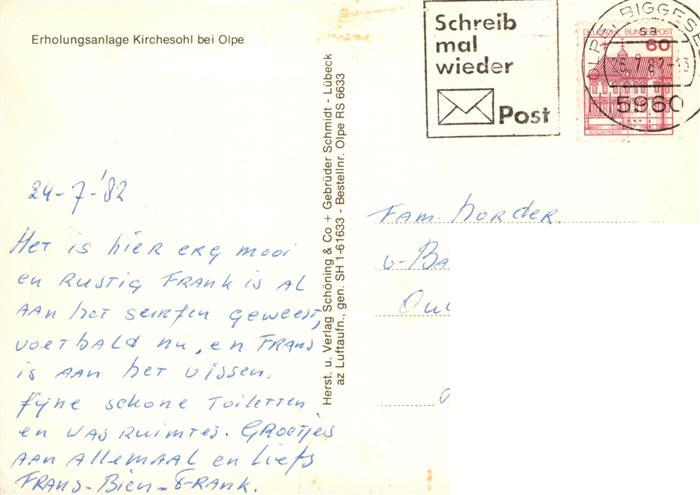 Erholungsanlage Kirchesohl bei Olpe
Schreib
mal
wieder
Post
BIGGESEE
DEUTSCHE BUNDESPOST
60
sa
5960
Herst. u. Verlag Schöning & Co + Gebrüder Schmidt - Lübeck
az Luftaufn., gen. SH 1-61633 - Bestellnr. Olpe RS 6633
24-7-'82
Het is hier erg mooi
en Rustig Frank is al
aan het surfen geweest,
voetbald nu, en Frans
is aan het vissen.
fyne schone Toiletten
en wasruimtes. Groetjes
aan allemaal en Liefs
Frans-Bien-Frank.
Fam. Morder
v-Ba
Ou